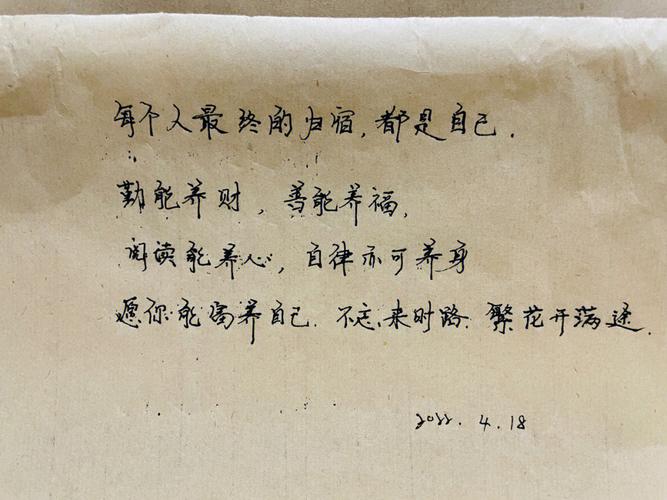 每个人最终的归宿,都是自己.
勤能养财,善能养福,
阅读能养心,自律亦可养身
愿你能富养自己.不忘来时路.繁花开满途.
2022.4.18